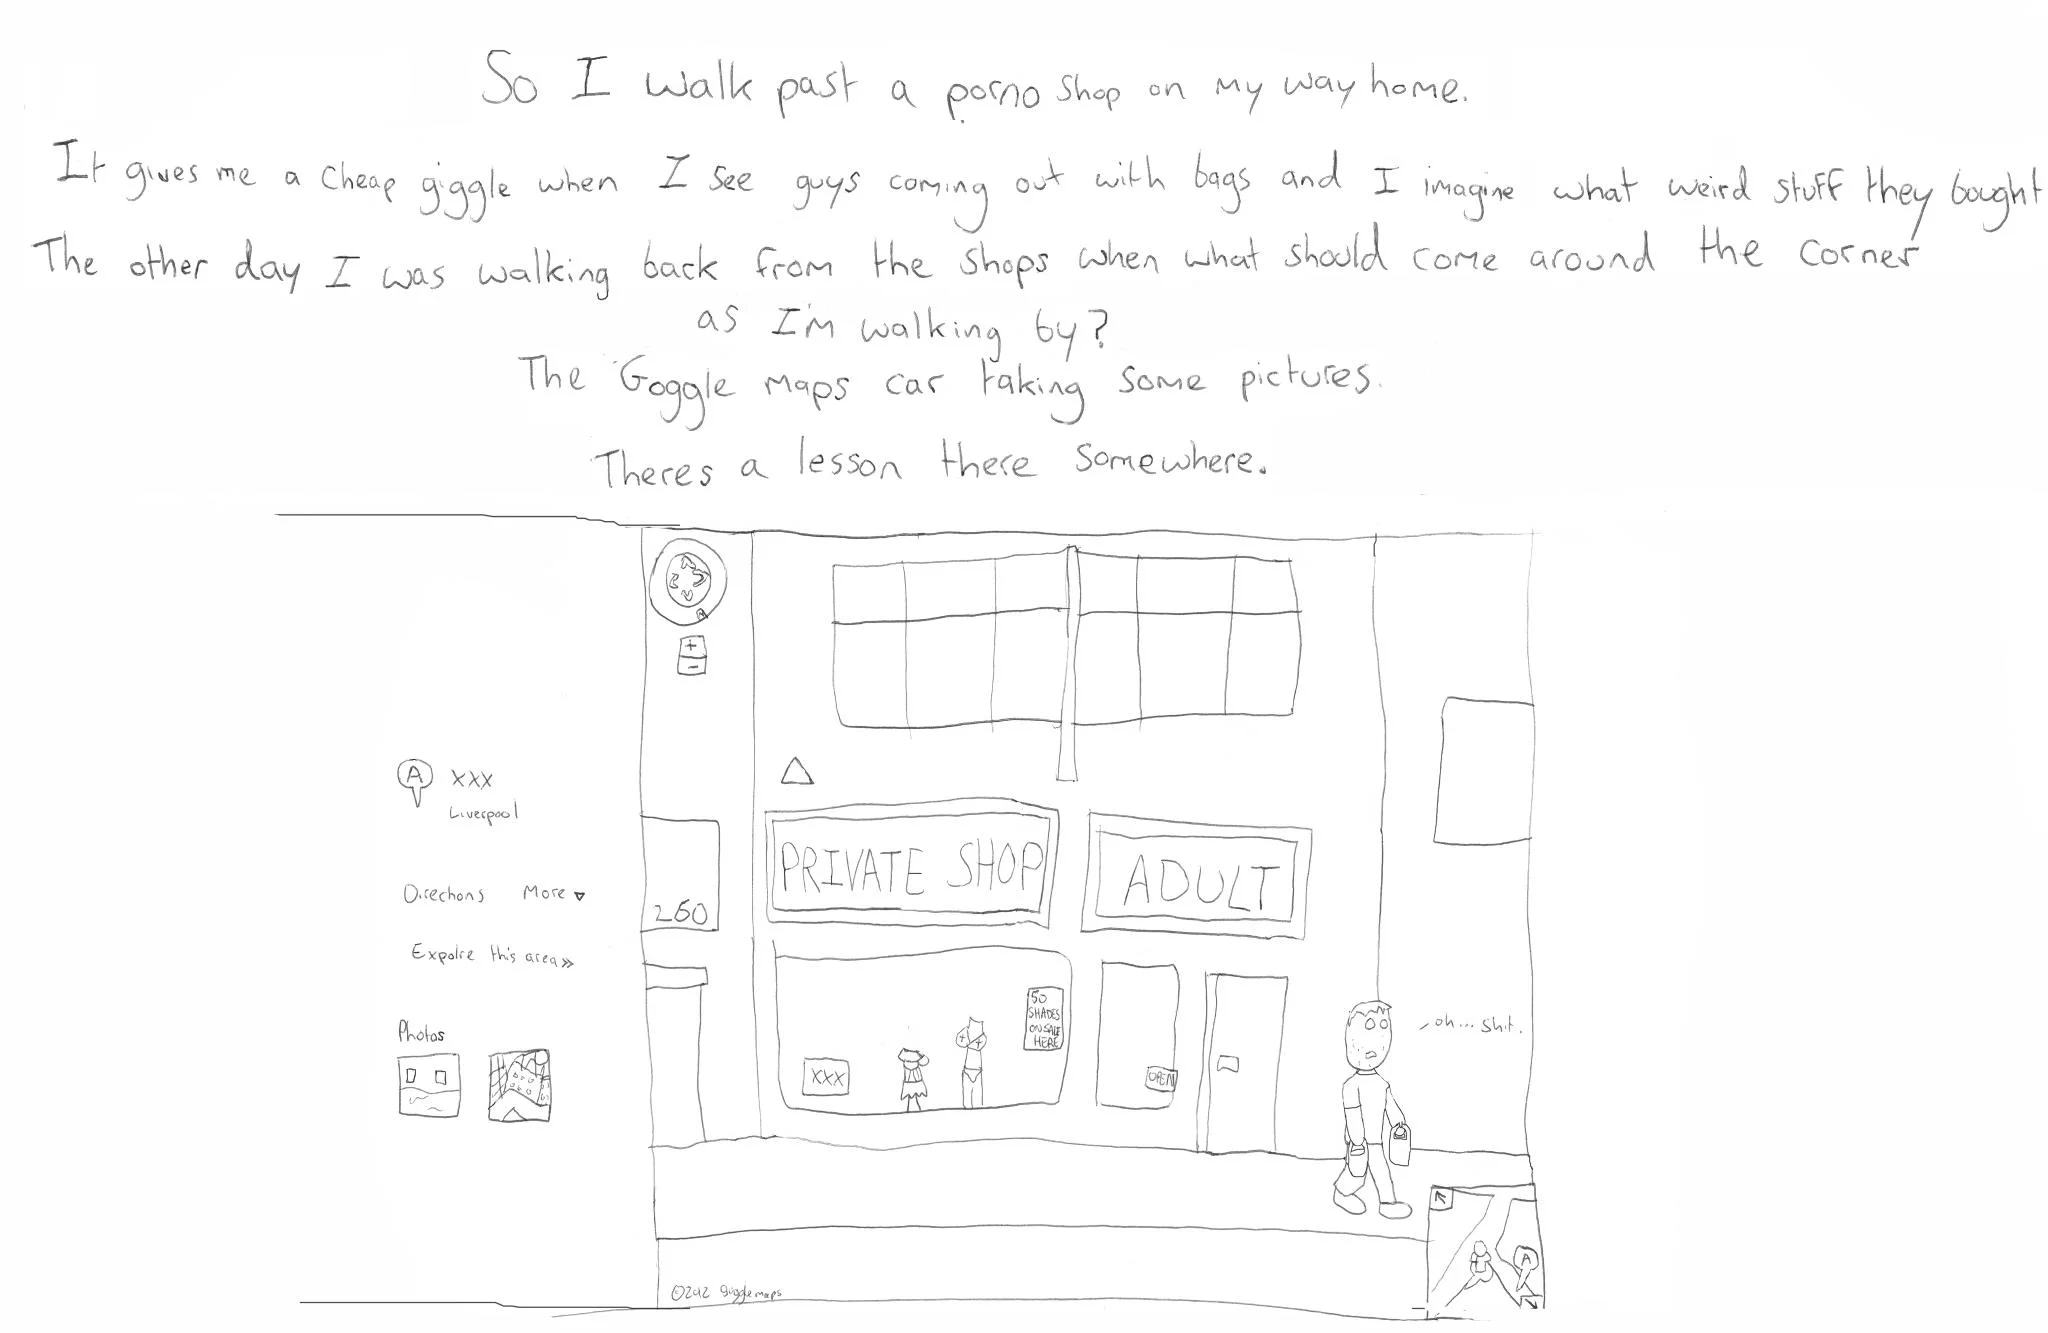 So I walk past a porno shop on my way home.
It gives me a cheap giggle when I see guys coming out with bags and I imagine what weird stuff they bought
The other day I was walking back from the shops when what should come around the corner
as I'm walking by?
The Goggle maps car taking some pictures.
Theres a lesson there somewhere.
+
-
A XXX
Liverpool
Directions More
Expolre this area»
Photos
260
PRIVATE SHOP
ADULT
50
SHADES
ON SALE
HERE
XXX
OPEN
oh... shit.
A
©2012 Goggle maps